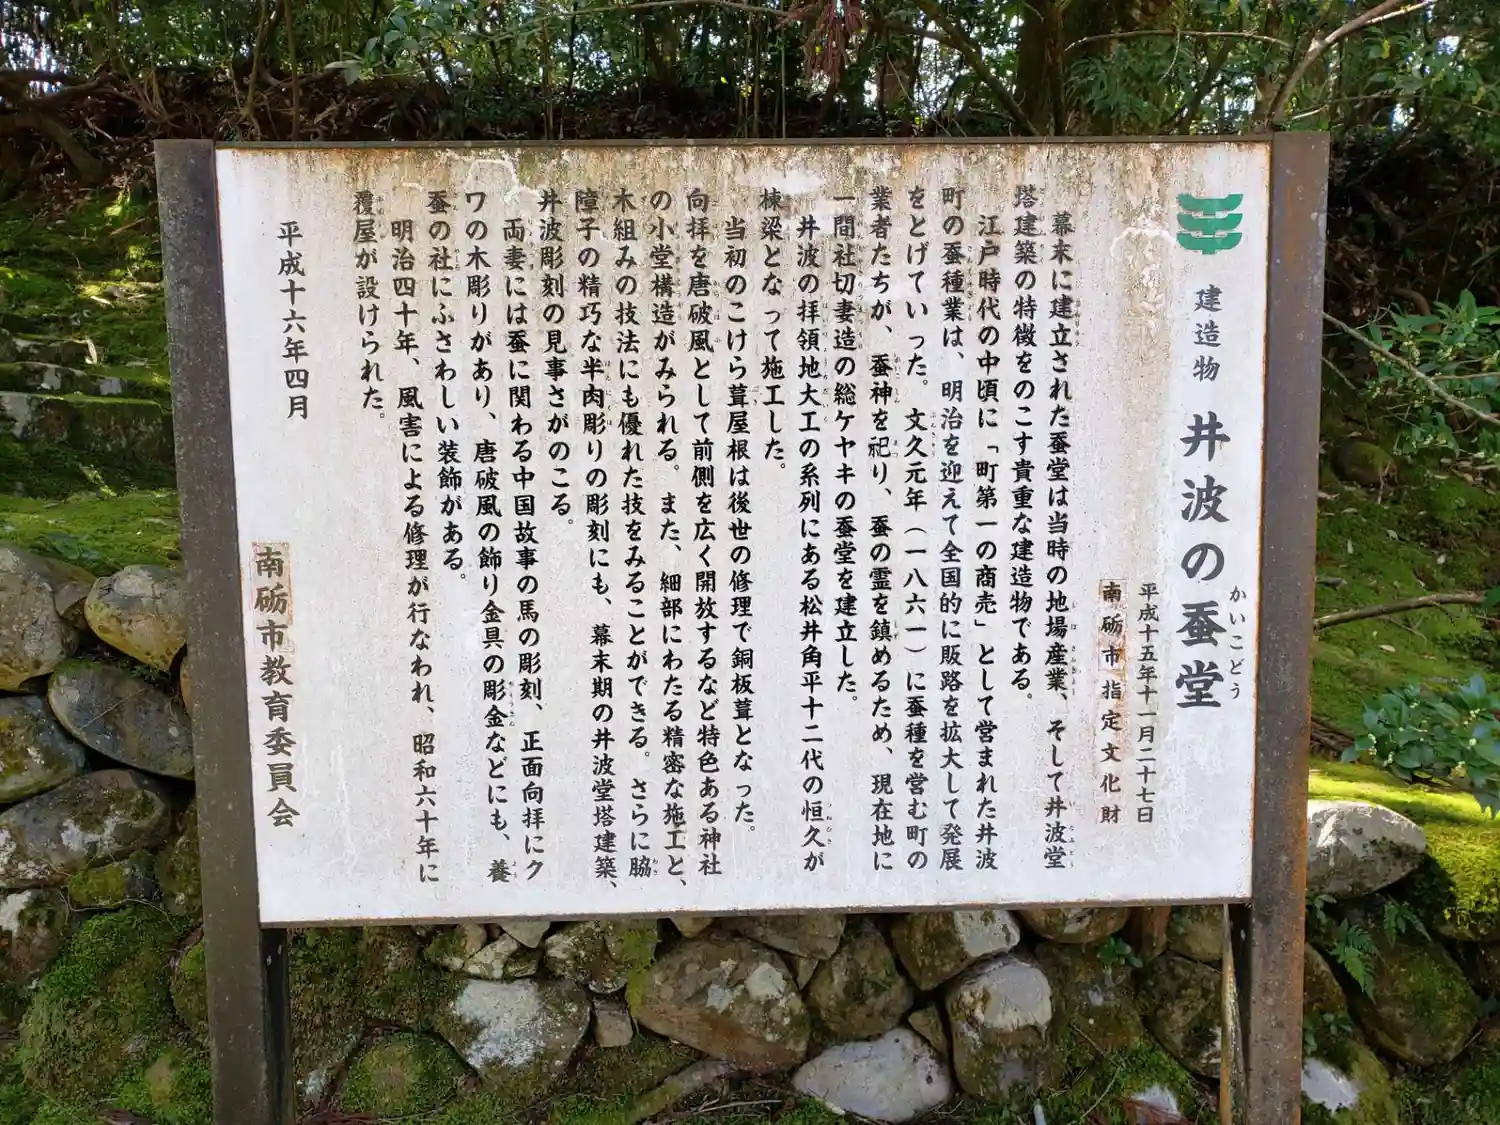 建造物 井波の蚕堂
かいこどう
平成十五年十一月二十七日
南砺市 指定文化財
幕末に建立された蚕堂は当時の地場産業、そして井波堂
塔建築の特徴をのこす貴重な建造物である。
江戸時代の中頃に「町第一の商売」として営まれた井波
町の蚕種業は、明治を迎えて全国的に販路を拡大して発展
をとげていった。文久元年(一八六一)に蚕種を営む町の
業者たちが、蚕神を祀り、蚕の霊を鎮めるため、現在地に
一間社切妻造の総ケヤキの蚕堂を建立した。
井波の拝領地大工の系列にある松井角平十二代の恒久が
棟梁となって施工した。
当初のこけら葺屋根は後世の修理で銅板葺となった。
向拝を唐破風として前側を広く開放するなど特色ある神社
の小堂構造がみられる。また、細部にわたる精密な施工と、
木組みの技法にも優れた技をみることができる。さらに脇
障子の精巧な半肉彫りの彫刻にも、幕末期の井波堂塔建築、
井波彫刻の見事さがのこる。
両妻には蚕に関わる中国故事の馬の彫刻、正面向拝にク
ワの木彫りがあり、唐破風の飾り金具の彫金などにも、養
蚕の社にふさわしい装飾がある。
明治四十年、風害による修理が行なわれ、昭和六十年に
覆屋が設けられた。
平成十六年四月
南砺市教育委員会